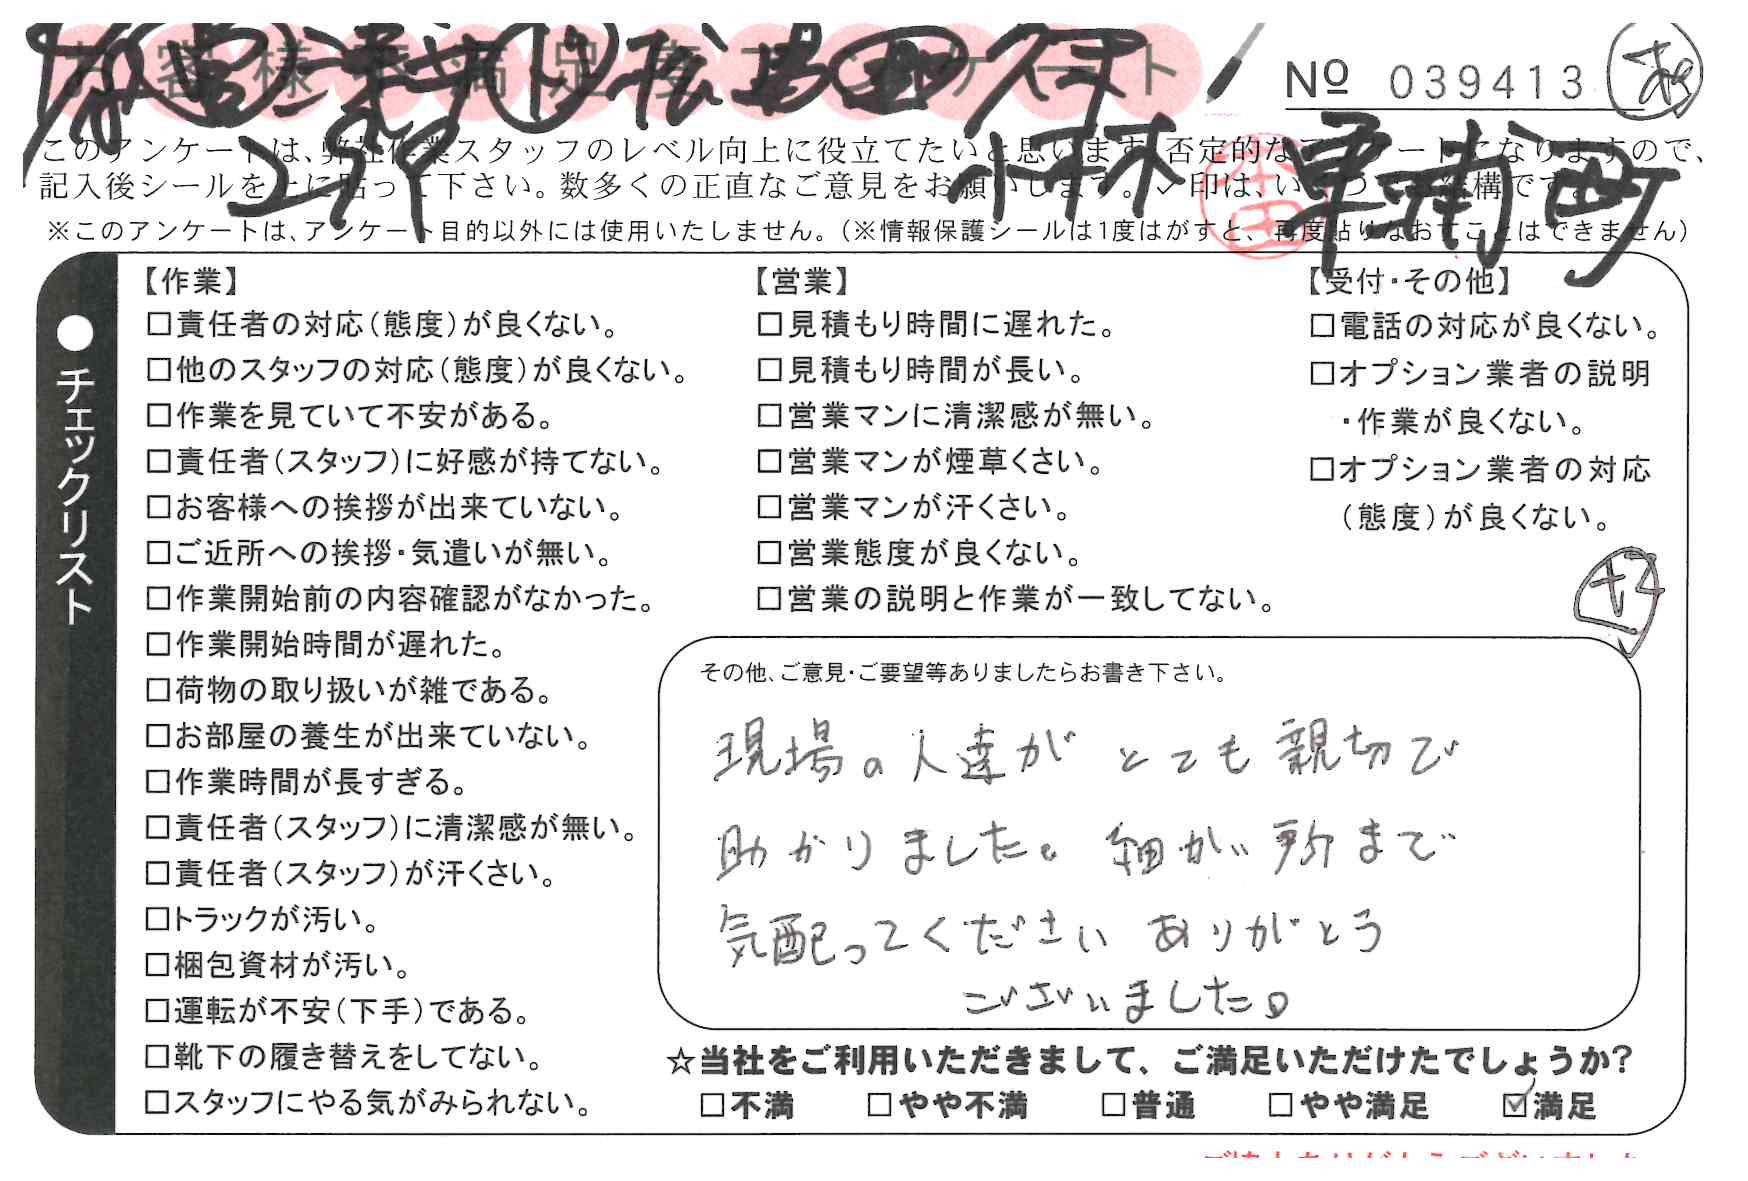 お客様不満足度アンケート
№ 039413
このアンケートは、弊社作業スタッフのレベル向上に役立てたいと思います。否定的なアンケートになりますので、
記入後シールを上に貼って下さい。数多くの正直なご意見をお願いします。✓印は、いくつでも結構です。
※このアンケートは、アンケート目的以外には使用いたしません。(※情報保護シールは1度はがすと、再度貼りなおすことはできません)
小林
草南町
●チェックリスト
【作業】
□責任者の対応(態度)が良くない。
□他のスタッフの対応(態度)が良くない。
□作業を見ていて不安がある。
□責任者(スタッフ)に好感が持てない。
□お客様への挨拶が出来ていない。
□ご近所への挨拶・気遣いが無い。
□作業開始前の内容確認がなかった。
□作業開始時間が遅れた。
□荷物の取り扱いが雑である。
□お部屋の養生が出来ていない。
□作業時間が長すぎる。
□責任者(スタッフ)に清潔感が無い。
□責任者(スタッフ)が汗くさい。
□トラックが汚い。
□梱包資材が汚い。
□運転が不安(下手)である。
□靴下の履き替えをしてない。
□スタッフにやる気がみられない。
【営業】
□見積もり時間に遅れた。
□見積もり時間が長い。
□営業マンに清潔感が無い。
□営業マンが煙草くさい。
□営業マンが汗くさい。
□営業態度が良くない。
□営業の説明と作業が一致してない。
【受付・その他】
□電話の対応が良くない。
□オプション業者の説明
・作業が良くない。
□オプション業者の対応
(態度)が良くない。
その他、ご意見・ご要望等ありましたらお書き下さい。
現場の人達が とても 親切で
助かりました。細かい所まで
気配ってくださいありがとう
ございました。
☆当社をご利用いただきまして、ご満足いただけたでしょうか?
□不満 □やや不満 □普通 □やや満足 ☑満足